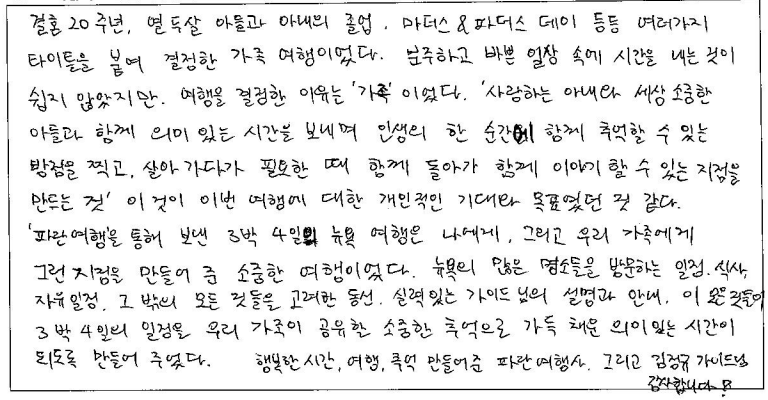 결혼 20주년, 열두살 아들과 아내의 졸업, 마더스&파더스 데이 등등 여러가지
타이틀을 붙여 결정한 가족 여행이었다. 분주하고 바쁜 일상 속에 시간을 내는 것이
쉽지 않았지만. 여행을 결정한 이유는 '가족' 이었다. '사랑하는 아내와 세상 소중한
아들과 함께 의미 있는 시간을 보내며 인생의 한 순간에 함께 추억할 수 있는
방점을 찍고, 살아가다가 필요한 때 함께 돌아가 함께 이야기 할 수 있는 지점을
만드는 것' 이것이 이번 여행에 대한 개인적인 기대와 목표였던 것 같다.
'파란여행'을 통해 보낸 3박 4일의 뉴욕 여행은 나에게, 그리고 우리 가족에게
그런 지점을 만들어 준 소중한 여행이었다. 뉴욕의 많은 명소들을 방문하는 일정, 식사,
자유일정, 그 밖의 모든 것들을 고려한 동선, 실력있는 가이드님의 설명과 안내, 이 모든것들이
3박 4일의 일정을 우리 가족이 공유한 소중한 추억으로 가득 채운 의미있는 시간이
되도록 만들어 주었다. 행복한 시간, 여행, 추억 만들어준 파란여행사, 그리고 김정규 가이드님
감사합니다!